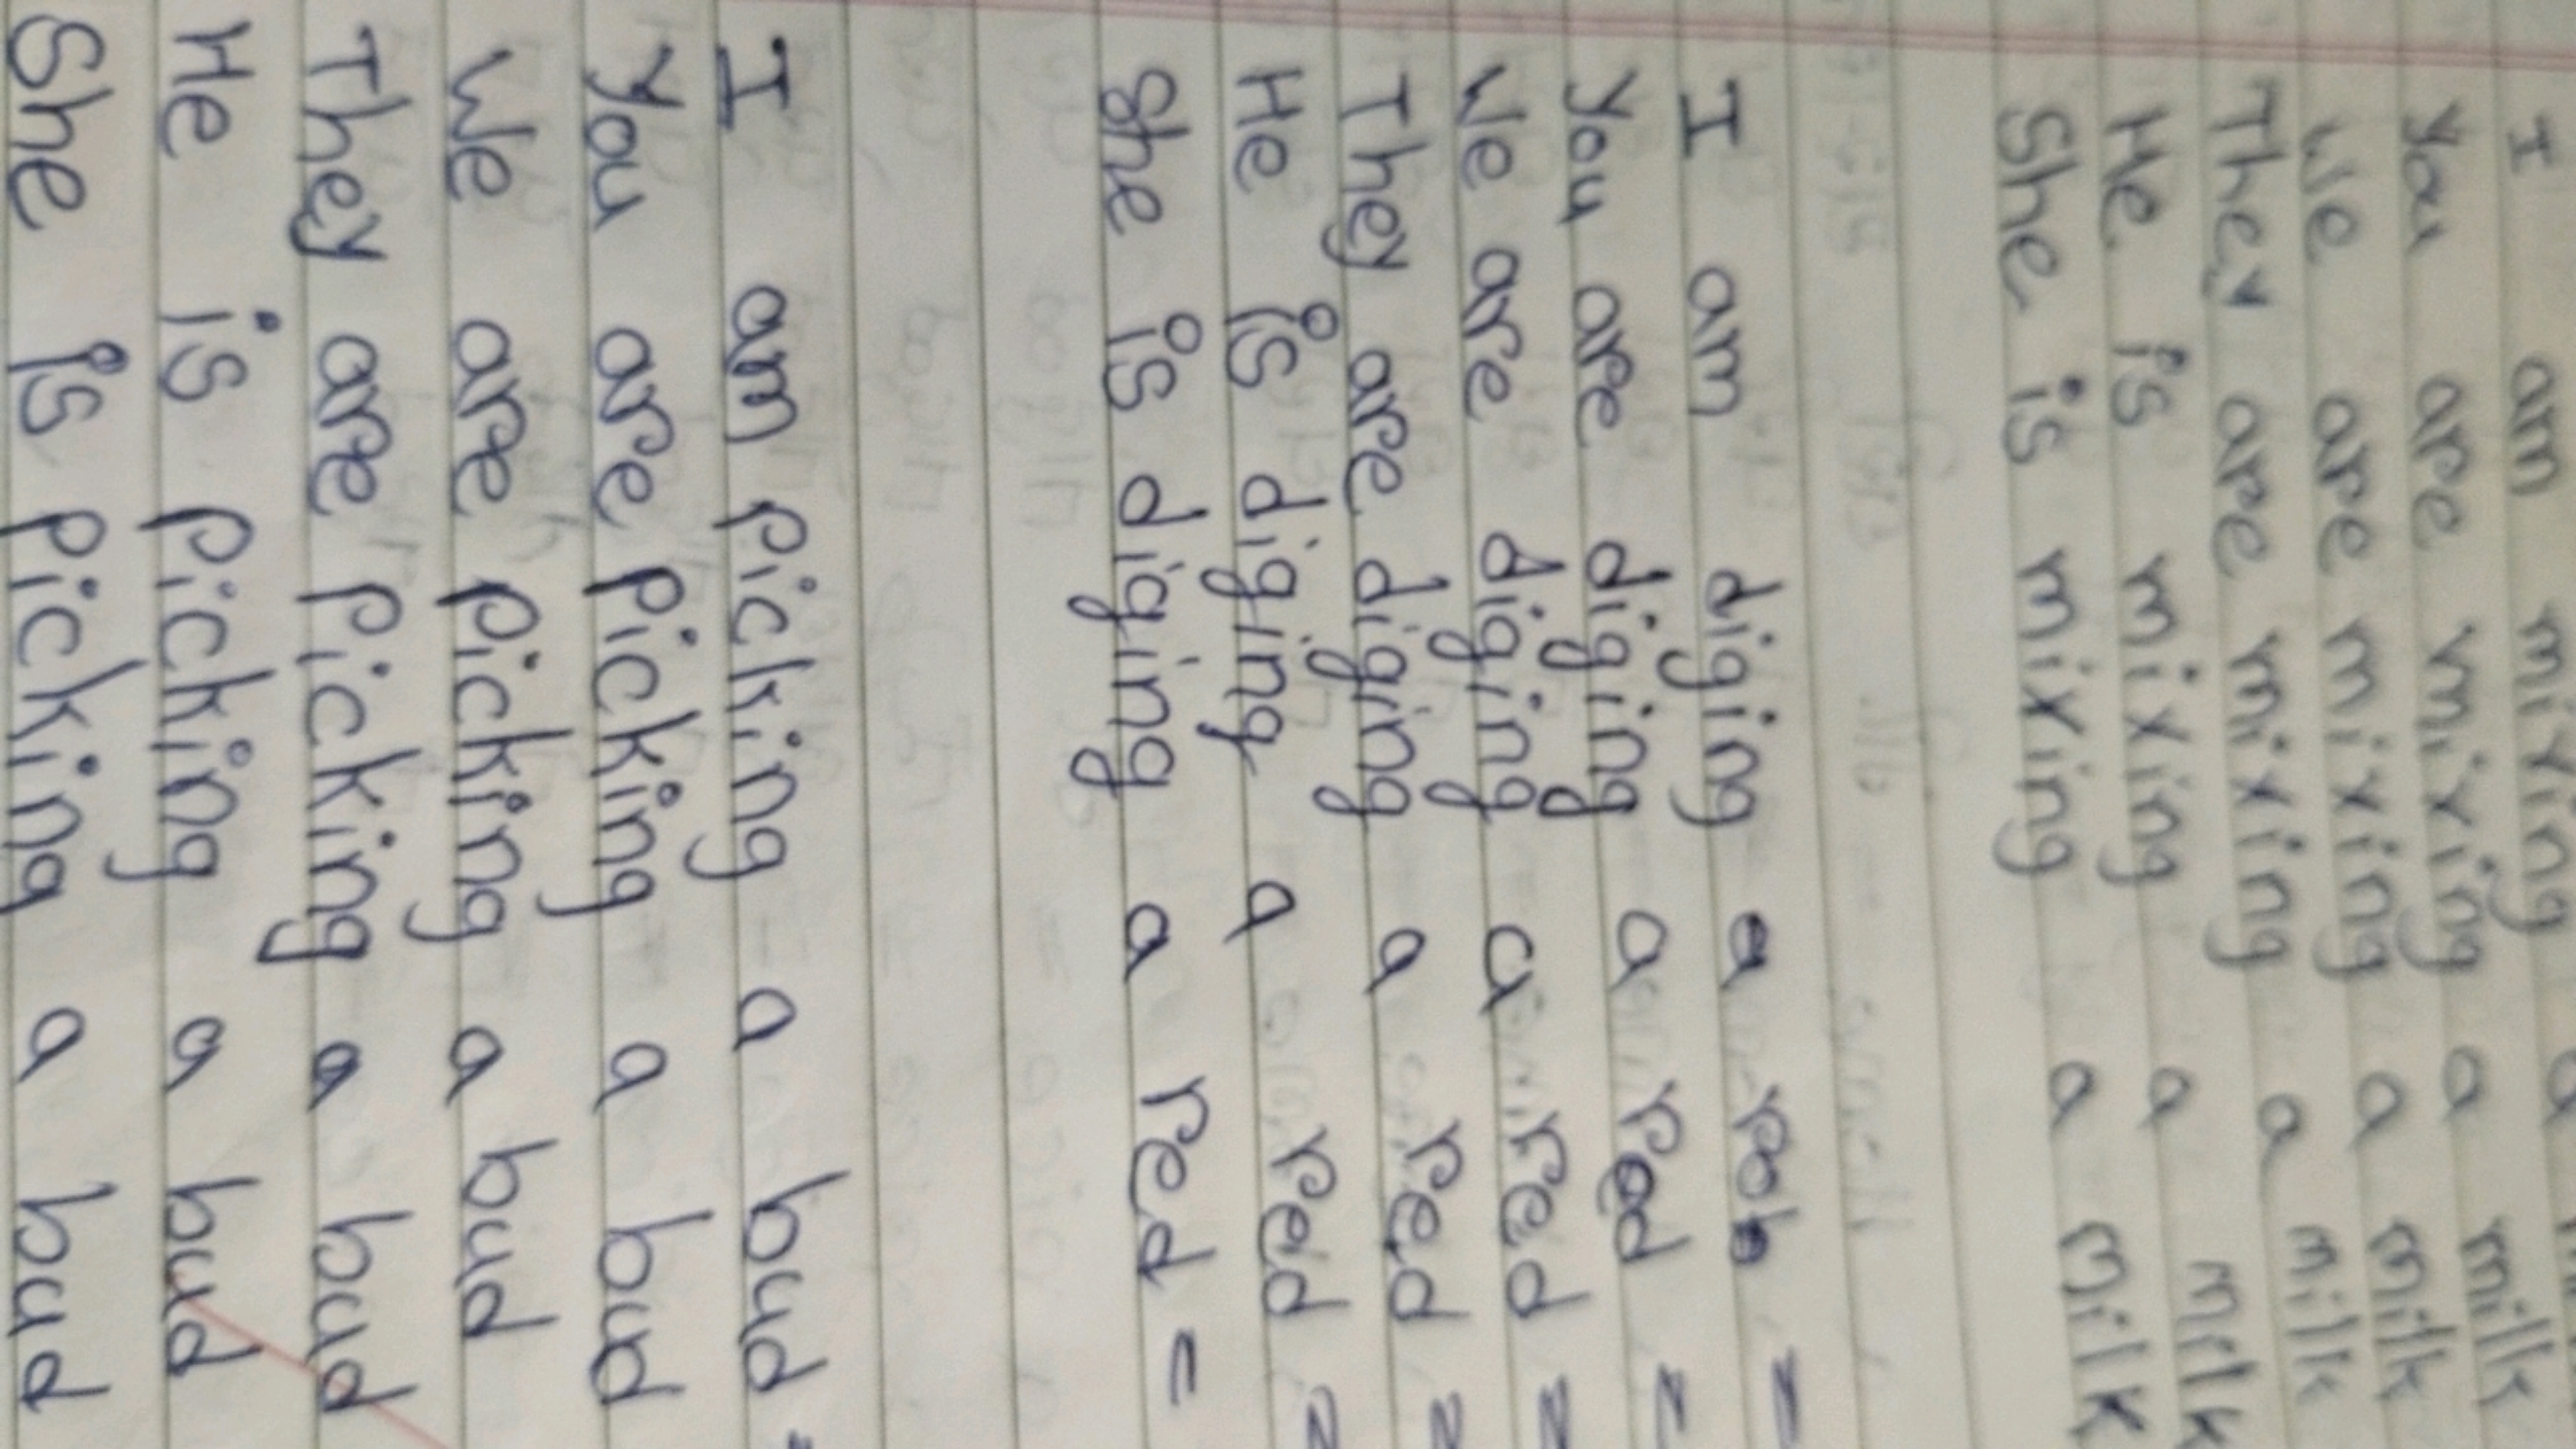 I am mixing a
You are mixing a milk
We are mixing a milk
They are mixing a milk
He is mixing a milk
She is mixing a milk
I am diging a =
You are diging a red =
We are diging a red =
They are diging a red =
He is diging a red =
She is diging a red =
I am picking a bud =
You are picking a bud
We are picking a bud
They are picking a bud
He is picking a bud
She is picking a bud